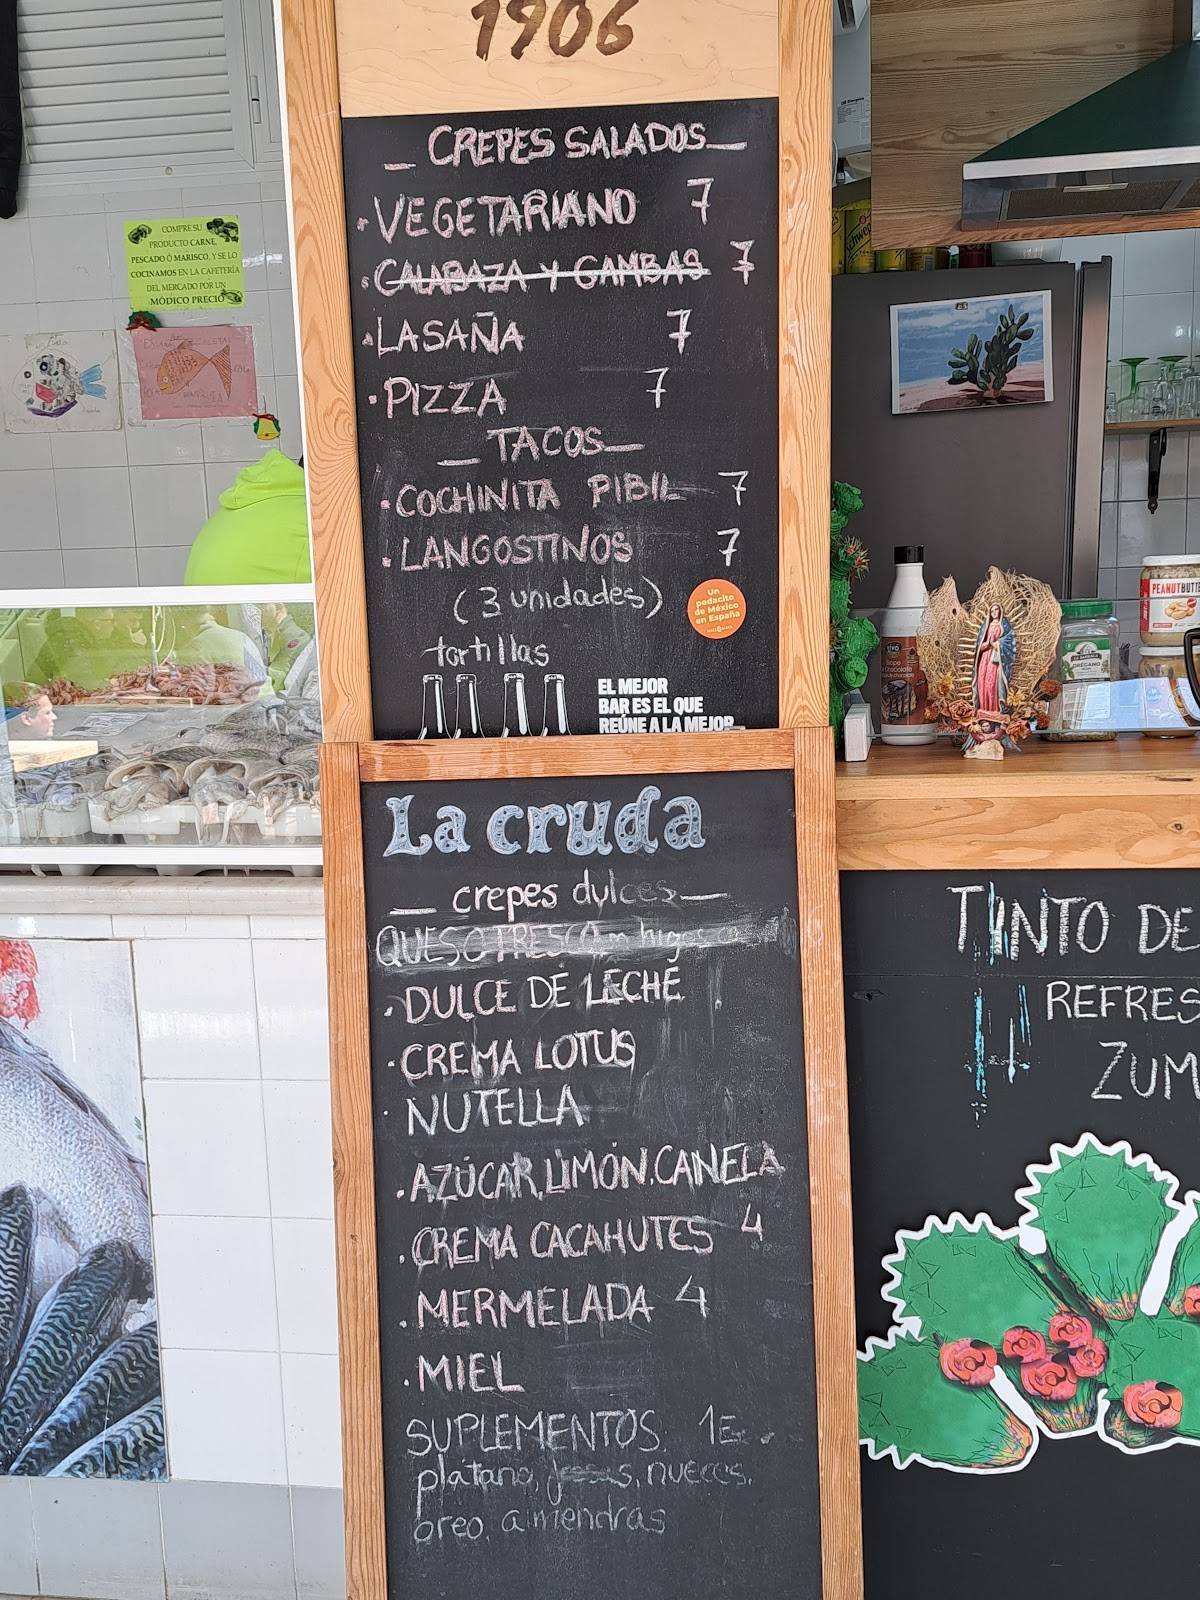 1906
CREPES SALADOS
·VEGETARIANO 7
·CALABAZA Y GAMBAS 7
·LASAÑA 7
·PIZZA 7
TACOS
·COCHINITA PIBIL 7
·LANGOSTINOS 7
(3 unidades)
tortillas
Un
pedacito
de México
en España
EL MEJOR
BAR ES EL QUE
REÚNE A LA MEJOR
La cruda
crepes dulces
QUESO FRESCO
·DULCE DE LECHE
·CREMA LOTUS
·NUTELLA
·AZÚCAR, LIMÓN, CANELA
·CREMA CACAHUTES 4
·MERMELADA 4
·MIEL
SUPLEMENTOS 1E
platano, nueces,
oreo, almendras
COMPRE SU
PRODUCTO CARNE,
PESCADO Ó MARISCO, Y SE LO
COCINAMOS EN LA CAFETERÍA
DEL MERCADO POR UN
MÓDICO PRECIO
TINTO DE
REFRES
ZUM
PEANUT BUTTE
ORÉGANO
Schweppes